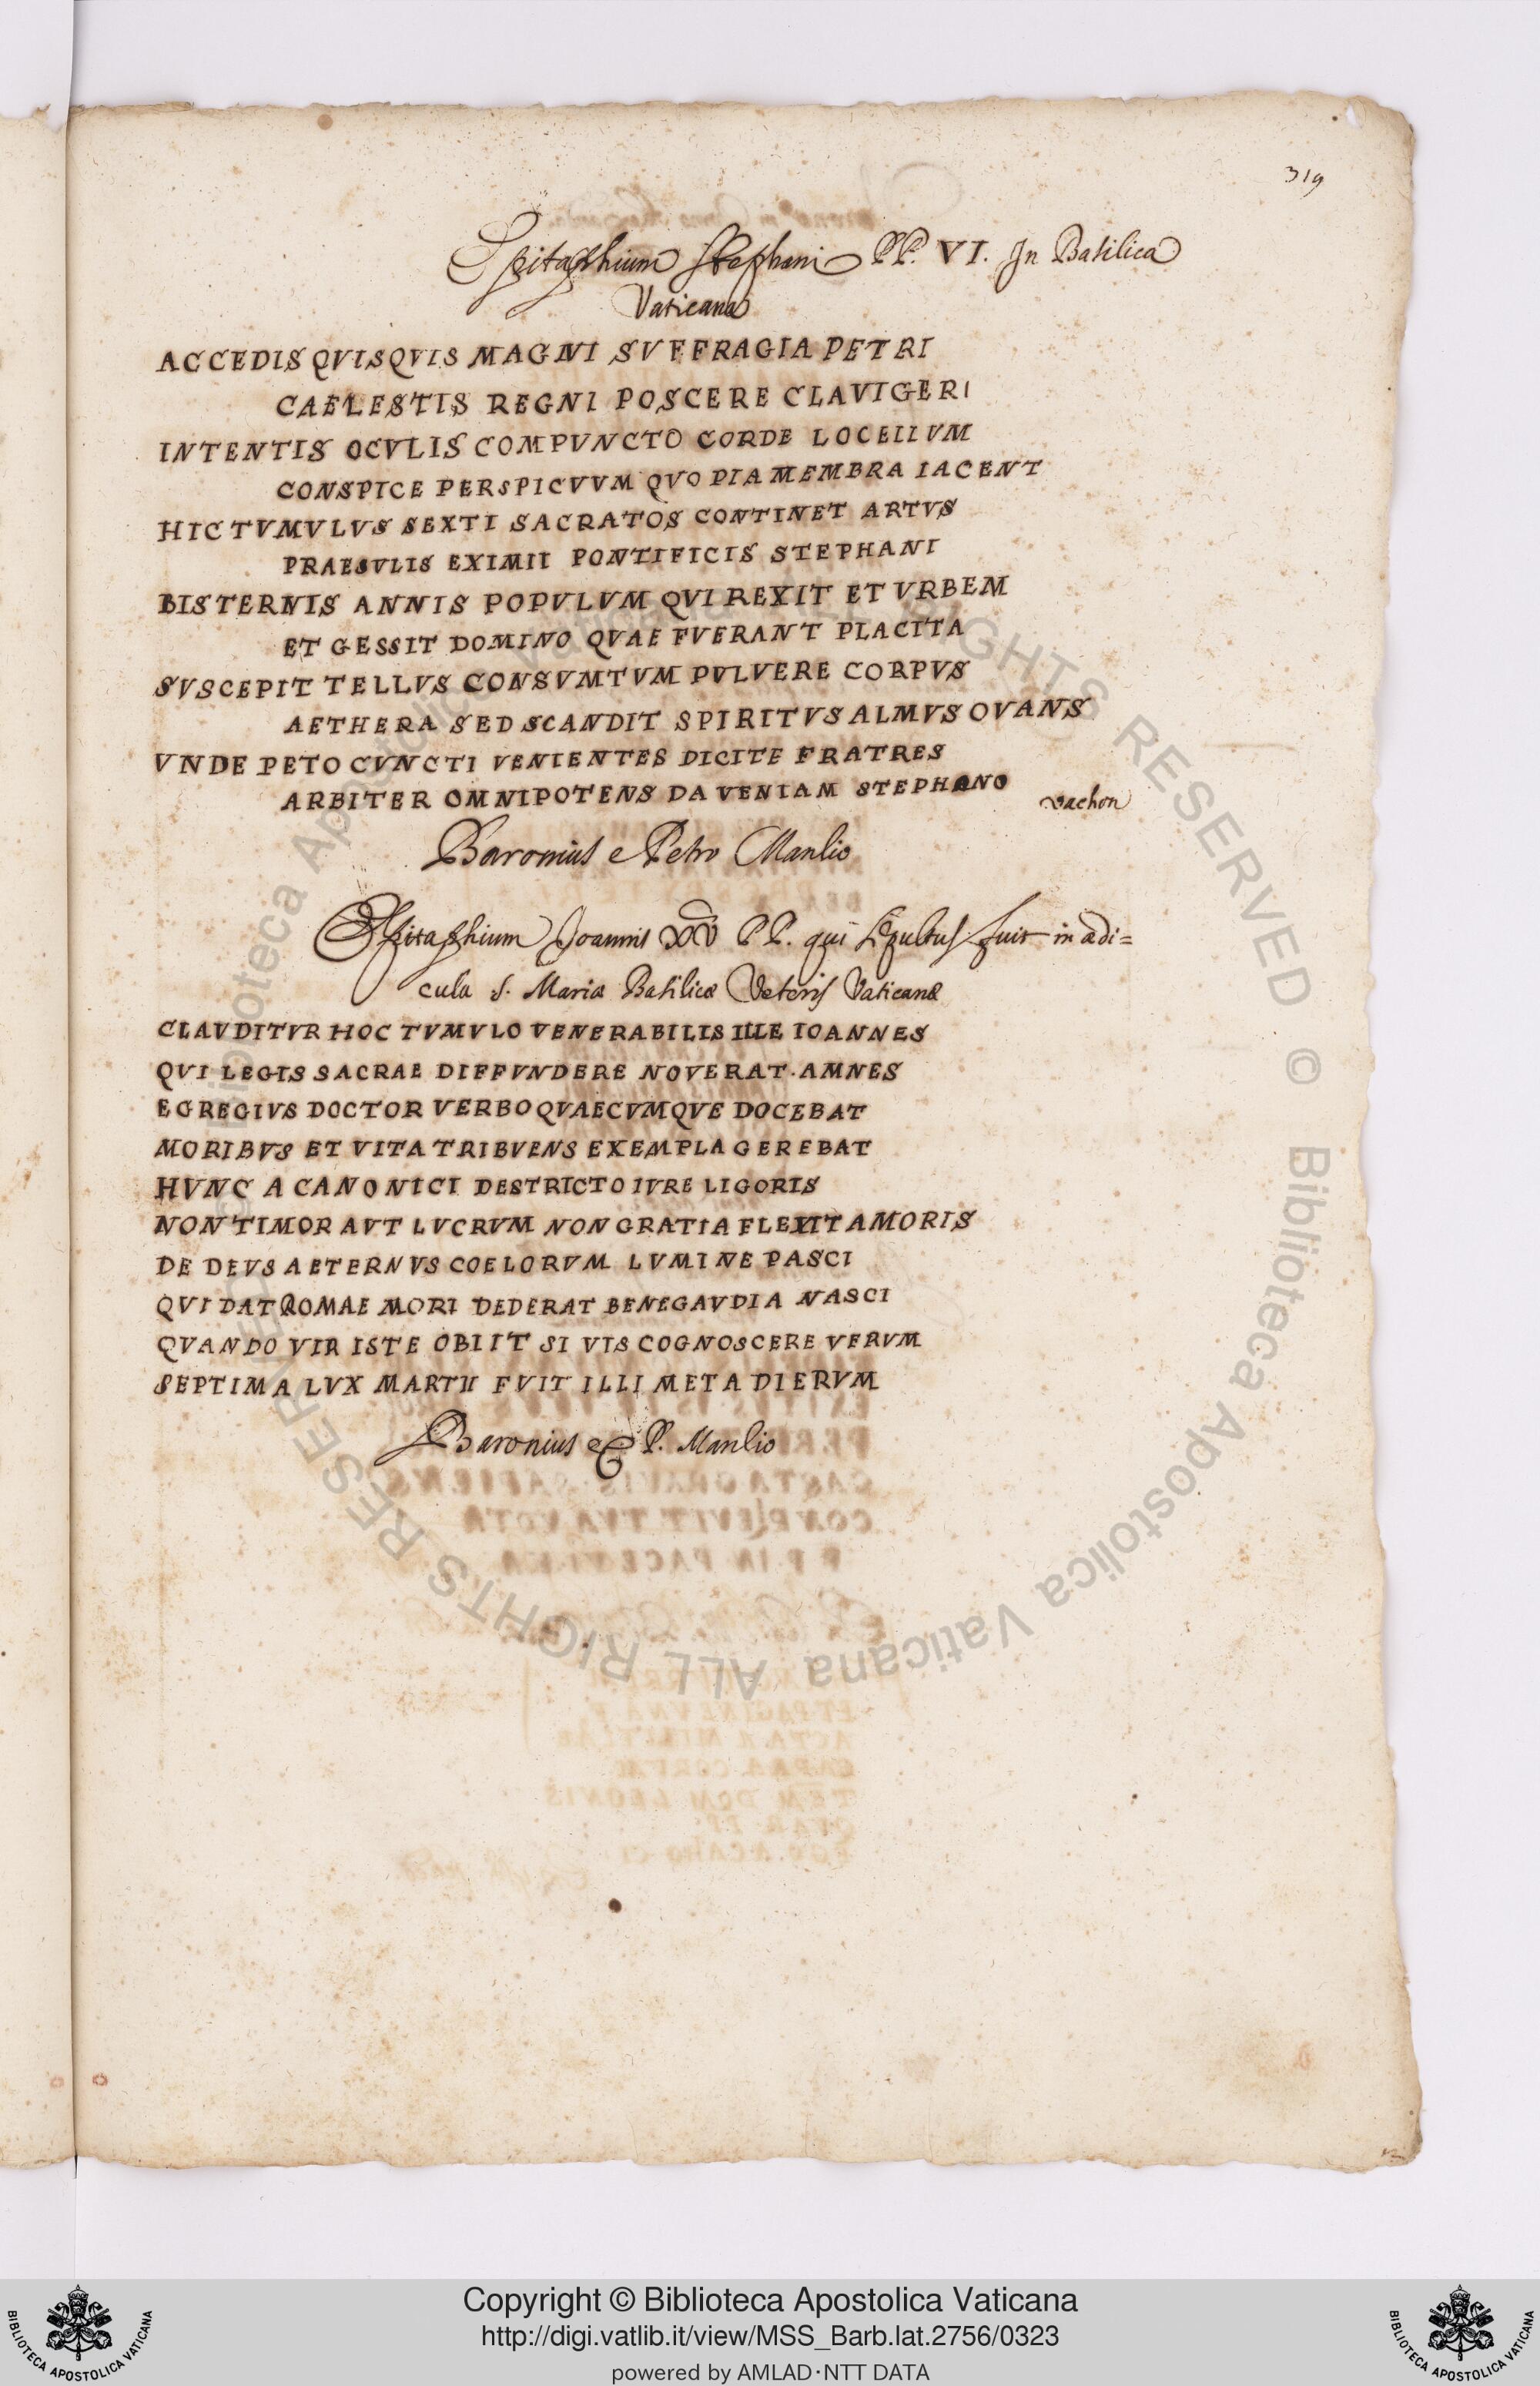 319
Epitaphium Stephani PP. VI. In Basilica
Vaticana
ACCEDIS QVISQVIS MAGNI SVFFRAGIA PETRI
CAELESTIS REGNI POSCERE CLAVIGERI
INTENTIS OCVLIS COMPVNCTO CORDE LOCELLVM
CONSPICE PERSPICVVM QVO PIA MEMBRA IACENT
HIC TVMVLVS SEXTI SACRATOS CONTINET ARTVS
PRAESVLIS EXIMII PONTIFICIS STEPHANI
BISTERNIS ANNIS POPVLVM QVI REXIT ET VRBEM
ET GESSIT DOMINO QVAE FVERANT PLACITA
SVSCEPIT TELLVS CONSVMTVM PVLVERE CORPVS
AETHERA SED SCANDIT SPIRITVS ALMVS OVANS
VNDE PETO CVNCTI VENIENTES DICITE FRATRES
ARBITER OMNIPOTENS DA VENIAM STEPHANO
vachon
Baronius e Petro Manlio
Epitaphium Joannis XV PP. qui sepultus fuit in adi=
cula S. Maria Basilicæ Veteris Vaticanæ
CLAVDITVR HOC TVMVLO VENERABILIS ILLE IOANNES
QVI LEGIS SACRAE DIFFVNDERE NOVERAT. AMNES
EGREGIVS DOCTOR VERBO QVAECVMQVE DOCEBAT
MORIBVS ET VITA TRIBVENS EXEMPLA GEREBAT
HVNC A CANONICI DESTRICTO IVRE LIGORIS
NON TIMOR AVT LVCRVM NON GRATIA FLEXIT AMORIS
DE DEVS AETERNVS COELORVM LVMINE PASCI
QVI DAT ROMAE MORI DEDERAT BENE GAVDIA NASCI
QVANDO VIR ISTE OBIIT SI VIS COGNOSCERE VERVM
SEPTIMA LVX MARTII FVIT ILLI META DIERVM
Baronius e P. Manlio
Biblioteca Apostolica Vaticana ALL RIGHTS RESERVED © Biblioteca Apostolica Vaticana ALL RIGHTS RESERVED ©
BIBLIOTECA APOSTOLICA VATICANA
Copyright © Biblioteca Apostolica Vaticana
http://digi.vatlib.it/view/MSS_Barb.lat.2756/0323
powered by AMLAD·NTT DATA
BIBLIOTECA APOSTOLICA VATICANA